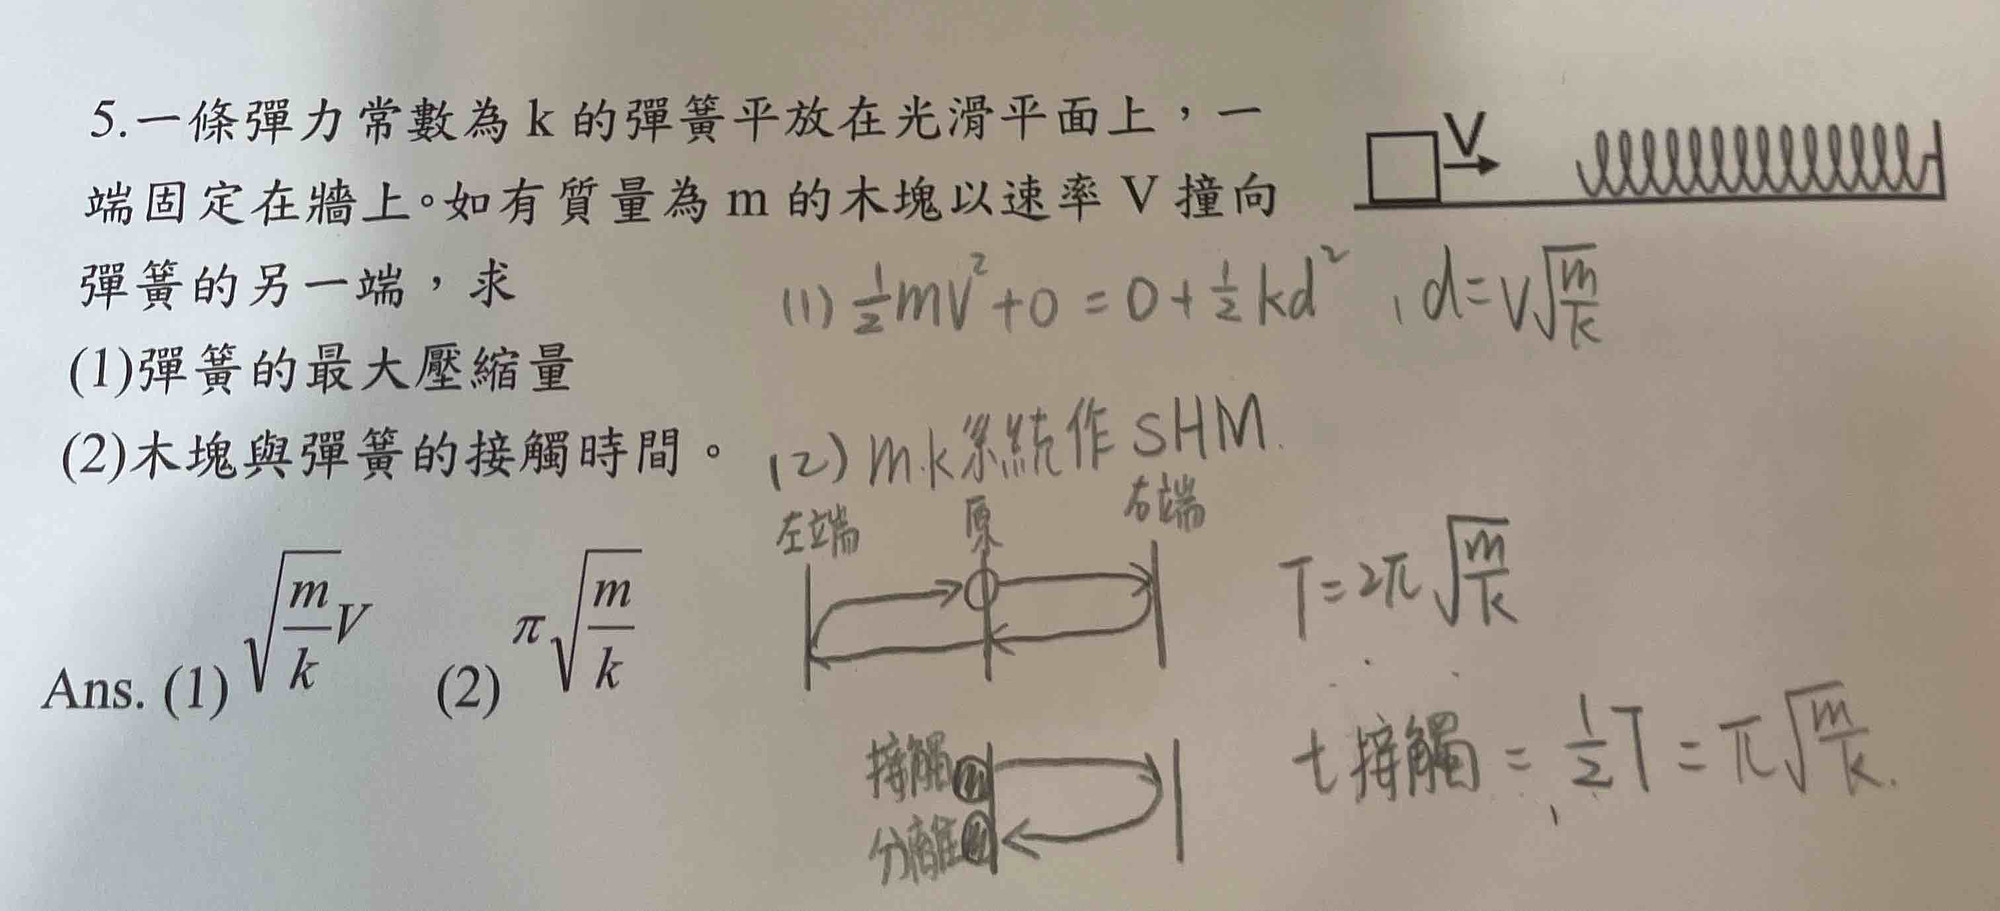 5.一條彈力常數為 k 的彈簧平放在光滑平面上，一
端固定在牆上。如有質量為 m 的木塊以速率 V 撞向
彈簧的另一端，求
(1)彈簧的最大壓縮量
(2)木塊與彈簧的接觸時間。
Ans. (1) √(m/k) V (2) π√(m/k)
V
(1) ½mV² + 0 = 0 + ½kd² , d = V√(m/k)
(2) m.k系統作 SHM.
左端 原 右端
T = 2π√(m/k)
接觸 m
分離 m
t接觸 = ½T = π√(m/k).